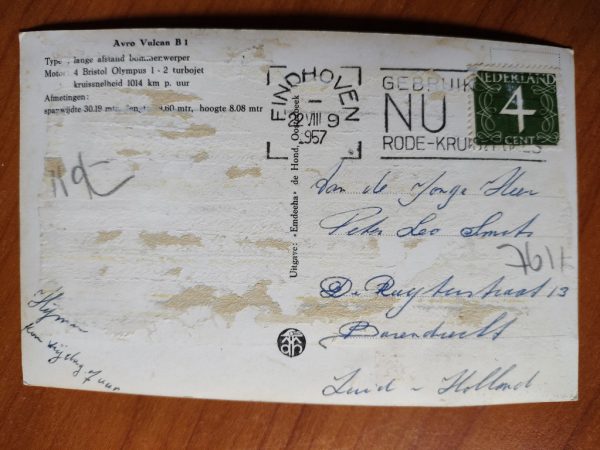 Avro Vulcan B 1
Type : lange afstand bommenwerper
Motor : 4 Bristol Olympus 1 - 2 turbojet
kruissnelheid 1014 km p. uur
Afmetingen :
spanwijdte 30.19 mtr, 9.60 mtr, hoogte 8.08 mtr
EINDHOVEN
VIII 9
1957
GEBRUIK
NU
RODE-KRUIS
NEDERLAND
4
CENT
Uitgave: „Emdeeha" de Hond,
Van de Jonge Heer
Peter Leo Smets
De Ruyterstraat 13
Barendrecht
Zuid - Holland
7 uur